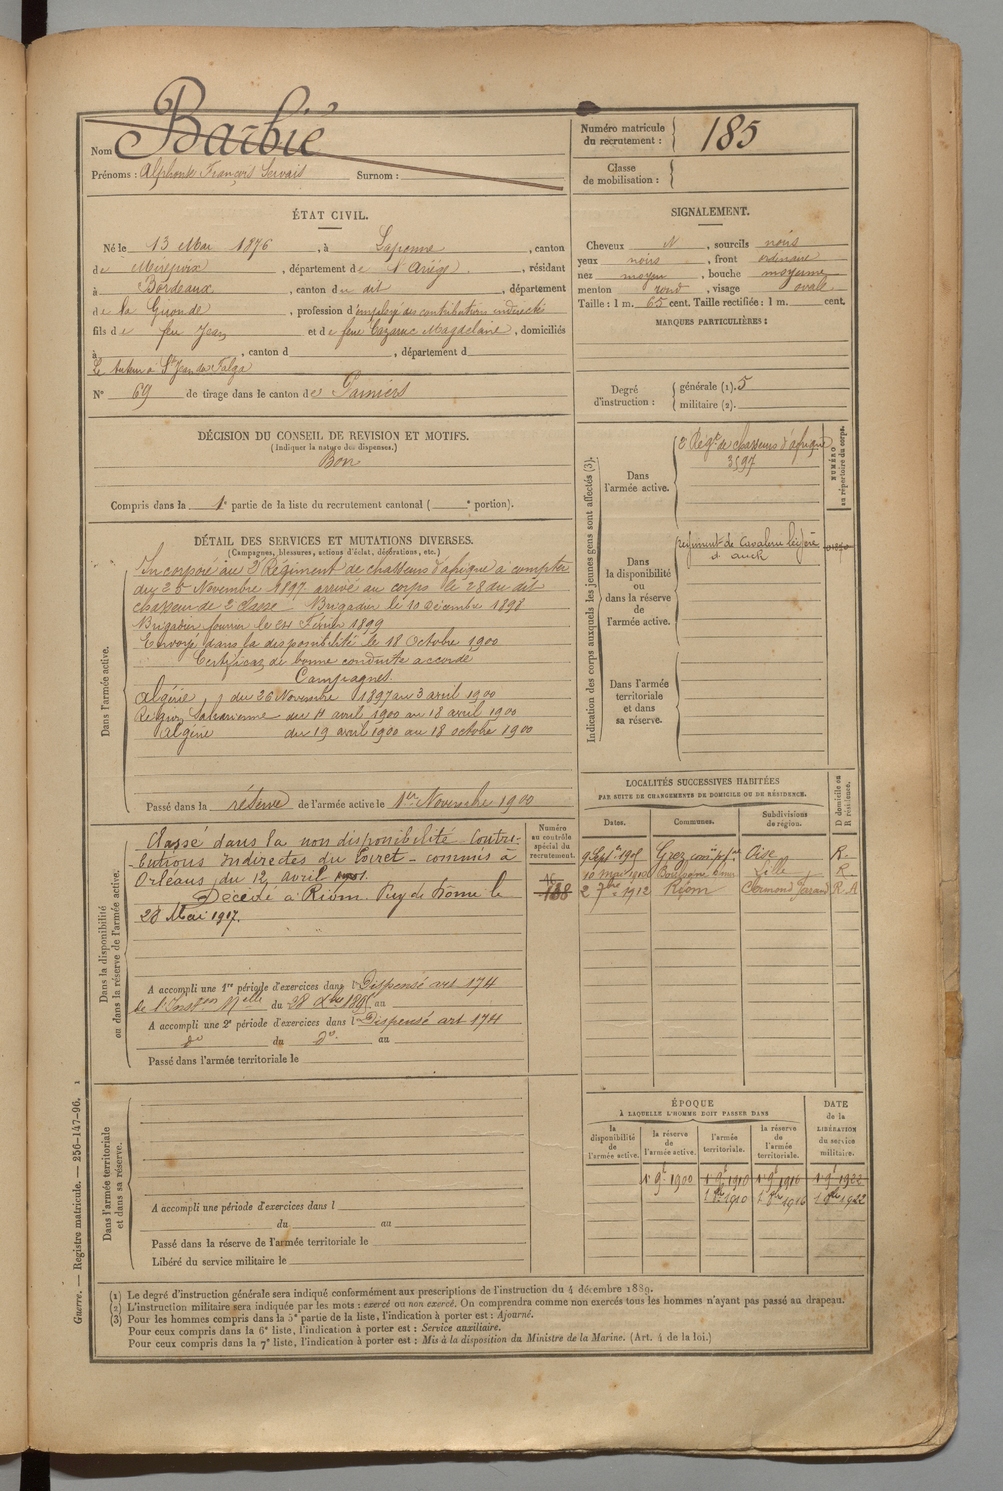 Nom Barbié
Prénoms : Alphonse François Servais Surnom :
Numéro matricule du recrutement : 185
Classe de mobilisation :
ÉTAT CIVIL.
Né le 13 Mai 1876, à Lapenne, canton
de Mirepoix, département de l'Ariège, résidant
à Bordeaux, canton du dit, département
de la Gironde, profession d'employé des contributions indirectes
fils de feu Jean et de feue Cazarre Magdelaine, domiciliés
à , canton d , département d
Le tuteur à St Jean du Falga
N° 69 de tirage dans le canton de Pamiers
SIGNALEMENT.
Cheveux N, sourcils noirs
yeux noirs, front ordinaire
nez moyen, bouche moyenne
menton rond, visage ovale
Taille : 1 m. 65 cent. Taille rectifiée : 1 m. cent.
MARQUES PARTICULIÈRES :
Degré d'instruction : générale (1). 5
militaire (2).
DÉCISION DU CONSEIL DE REVISION ET MOTIFS.
(Indiquer la nature des dispenses.)
Bon
Compris dans la 1e partie de la liste du recrutement cantonal ( e portion).
DÉTAIL DES SERVICES ET MUTATIONS DIVERSES.
(Campagnes, blessures, actions d'éclat, décorations, etc.)
Dans l'armée active.
Incorporé au 2e Régiment de chasseurs d'afrique à compter
du 25 Novembre 1897 arrivé au corps le 28 du dit
chasseur de 2 classe Brigadier le 10 décembre 1898
Brigadier fourrier le 24 Février 1899
Envoyé dans la disponibilité le 18 Octobre 1900
Certificat de bonne conduite accordé
Campagnes
Algérie, du 26 Novembre 1897 au 3 avril 1900
Région Saharienne du 4 avril 1900 au 18 avril 1900
Algérie du 19 avril 1900 au 18 octobre 1900
Passé dans la réserve de l'armée active le 1er Novembre 1900
Indication des corps auxquels les jeunes gens sont affectés (3).
NUMÉRO au répertoire du corps.
Dans l'armée active.
2 Régt de chasseurs d'afrique
3597
Dans la disponibilité ou dans la réserve de l'armée active.
régiment de Cavalerie légère
d'auch
Dans l'armée territoriale et dans sa réserve.
Dans la disponibilité ou dans la réserve de l'armée active.
Numéro au contrôle spécial du recrutement.
Classé dans la non disponibilité Contri-
butions Indirectes du Loiret - commis à
Orléans, du 12 avril
Décédé à Riom Puy de Dôme le
28 Mai 1917.
A accompli une 1re période d'exercices dans l Dispensé art 174
de l'Inston Melle du 28 Xbre 1895 au
A accompli une 2e période d'exercices dans l Dispensé art 174
do du do au
Passé dans l'armée territoriale le
LOCALITÉS SUCCESSIVES HABITÉES
PAR SUITE DE CHANGEMENTS DE DOMICILE OU DE RÉSIDENCE.
Dates. Communes. Subdivisions de région. D domicile ou R résidence.
Oise R.
Lille R.
2 7bre 1912 Riom Clermont Ferrand R.A
Dans l'armée territoriale et dans sa réserve.
A accompli une période d'exercices dans l
du au
Passé dans la réserve de l'armée territoriale le
Libéré du service militaire le
ÉPOQUE
À LAQUELLE L'HOMME DOIT PASSER DANS
DATE de la LIBÉRATION du service militaire.
la disponibilité de l'armée active. la réserve de l'armée active. l'armée territoriale. la réserve de l'armée territoriale.
1r 9e 1900 1r 9e 1910 1r 9e 1916 1r 9e 1922
1 9bre 1910 1 9bre 1916 1 9bre 1922
(1) Le degré d'instruction générale sera indiqué conformément aux prescriptions de l'instruction du 4 décembre 1889.
(2) L'instruction militaire sera indiquée par les mots : exercé ou non exercé. On comprendra comme non exercés tous les hommes n'ayant pas passé au drapeau.
(3) Pour les hommes compris dans la 5e partie de la liste, l'indication à porter est : Ajourné.
Pour ceux compris dans la 6e liste, l'indication à porter est : Service auxiliaire.
Pour ceux compris dans la 7e liste, l'indication à porter est : Mis à la disposition du Ministre de la Marine. (Art. 4 de la loi.)
Guerre. — Registre matricule. — 256-147-96. 1